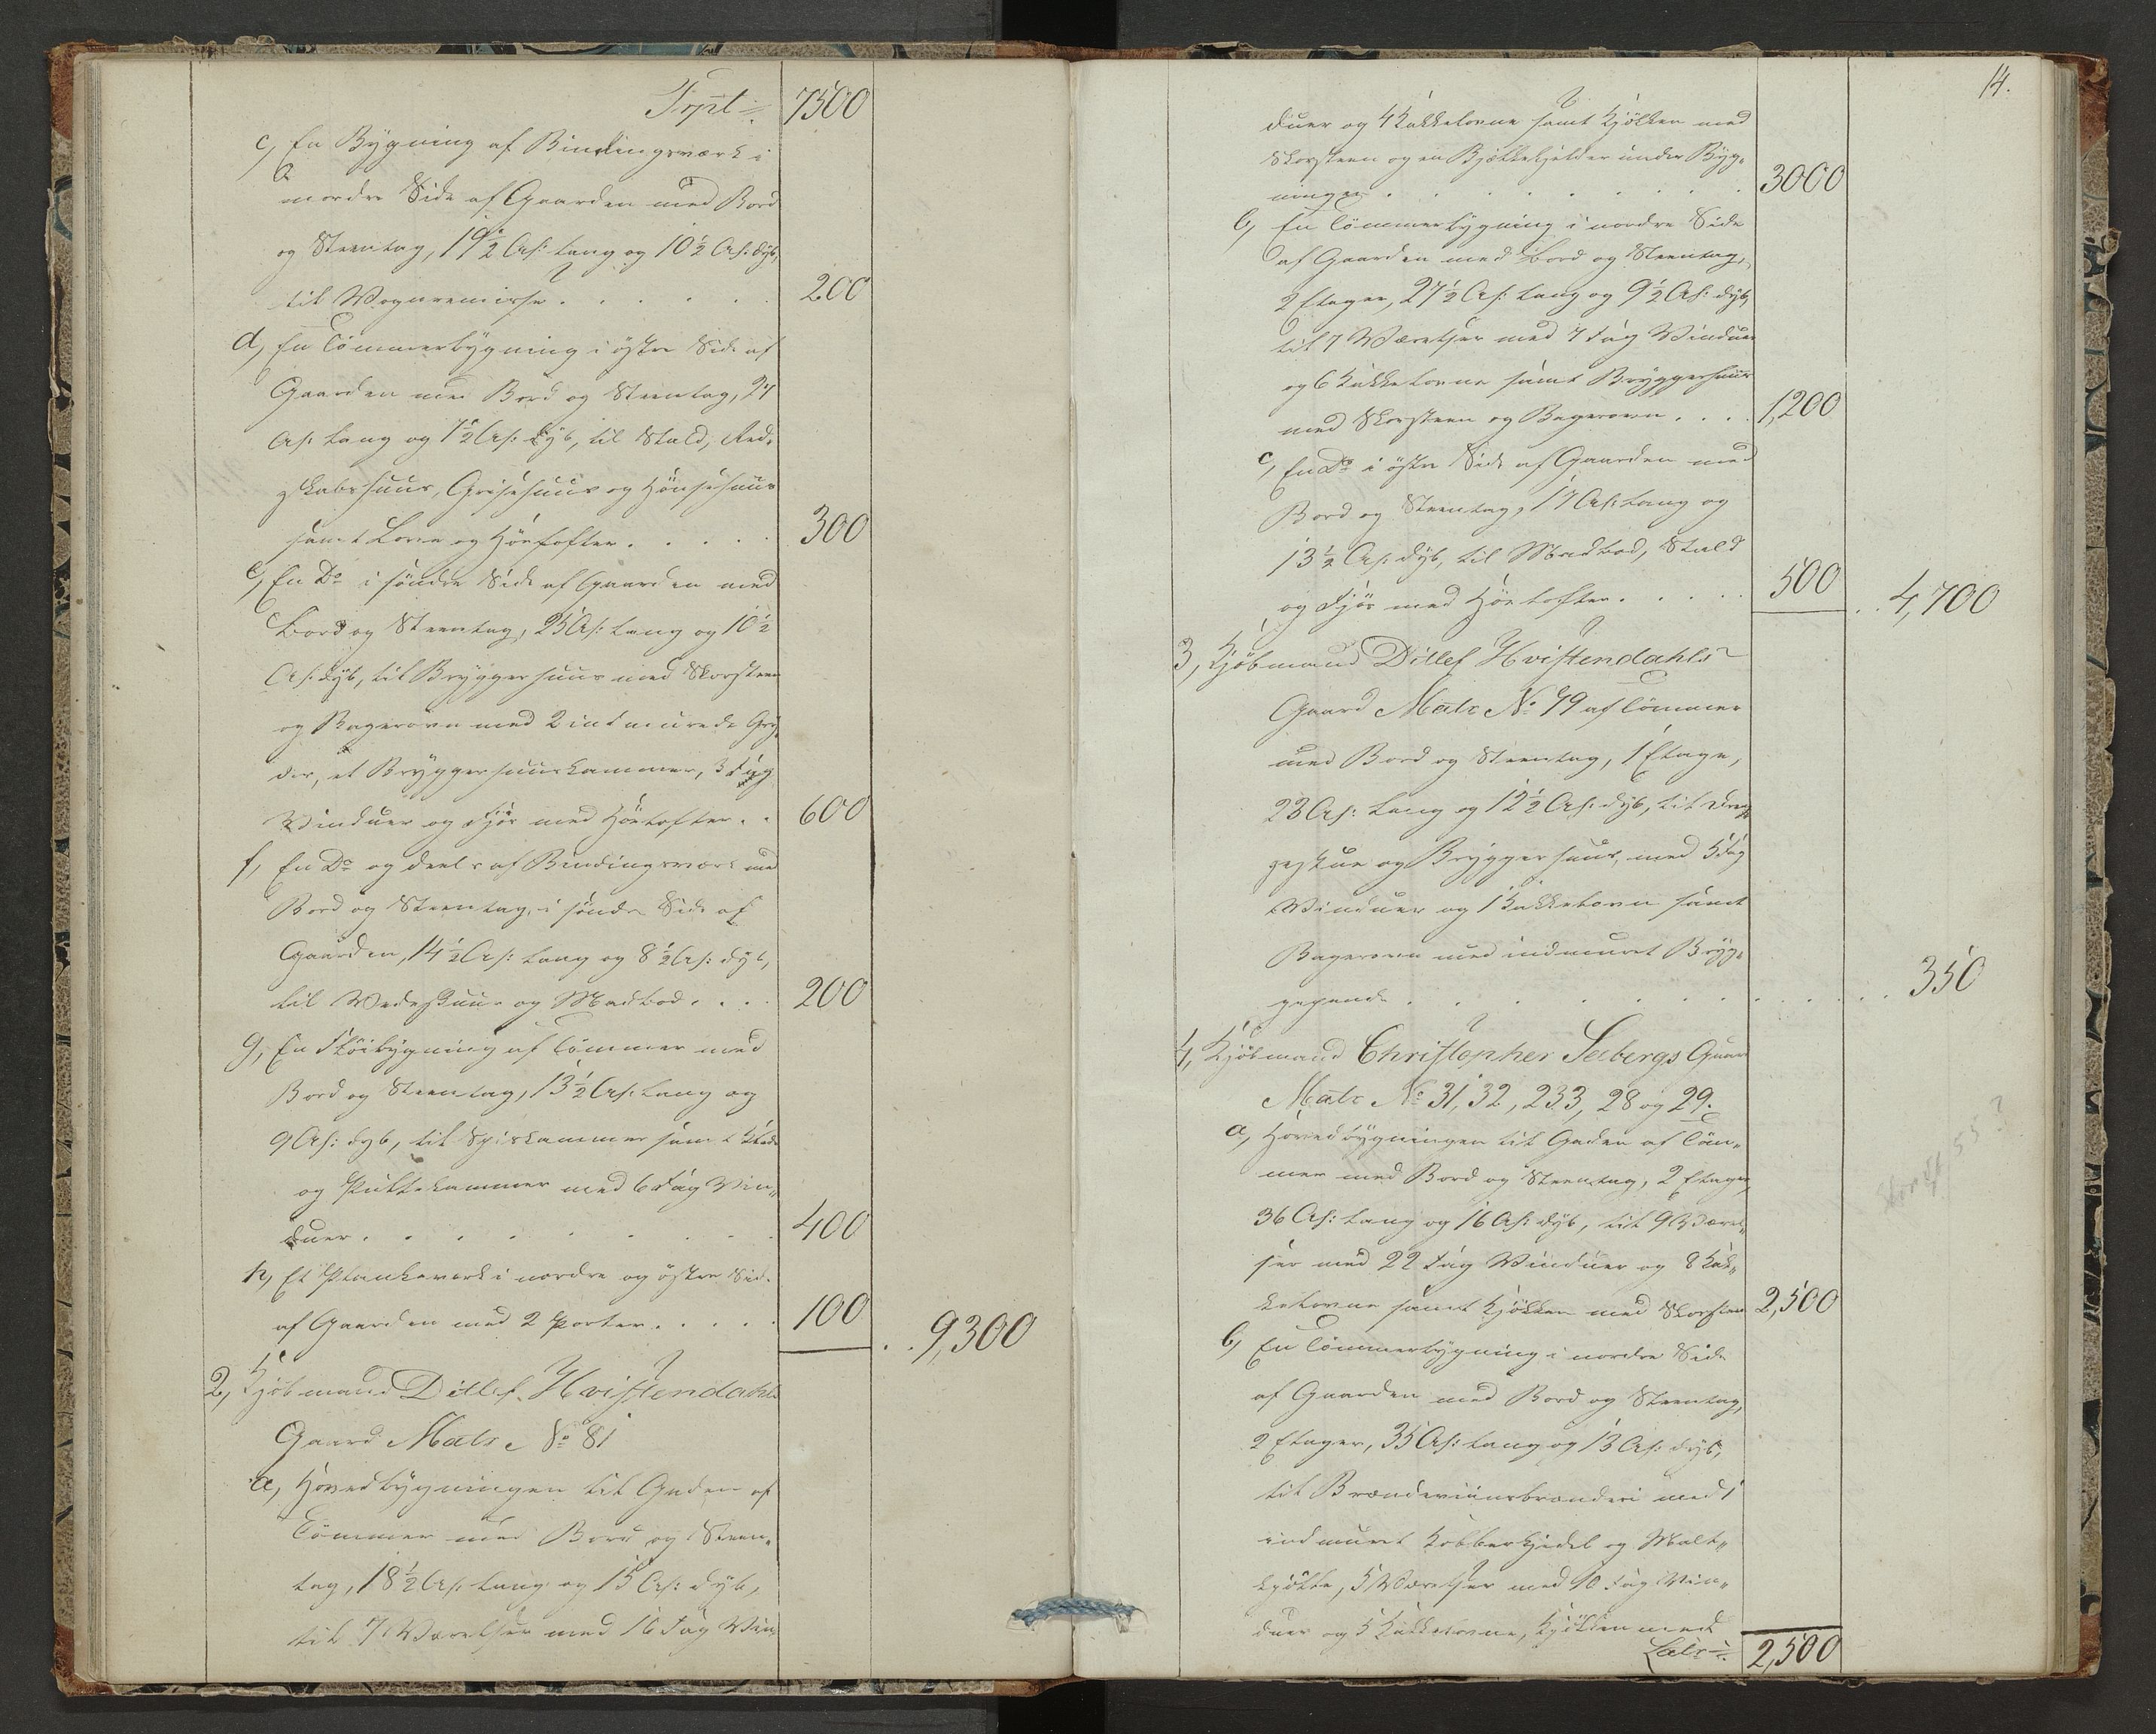 Trpt 7500
c, En Bygning af Bindingsværk i
nordre Side af Gaarden med Bord
og Steentag, 19½ Al: lang og 10½ Al: dyb,
til Vognremisse . . . . . . 200
d, En Tömmerbygning i östre Side af
Gaarden med Bord og Steentag, 27
Al: lang og 7½ Al: dyb, til Stald, Red-
skabshuus, Grisehuus og Hönsehuus
samt Love og Höelofter . . . . . 300
e, En Do i söndre Side af Gaarden med
Bord og Steentag, 25 Al: lang og 10½
Al: dyb, til Bryggerhuus med Skorsteen
og Bagerovn med 2 indmurede Gry-
der, et Bryggerhuuskammer, 3 Fag
Vinduer og Fjös med Höelofter . . 600
f, En Do og deels af Bindingsværk med
Bord og Steentag, i söndre Side af
Gaarden, 14½ Al: lang og 8½ Al: dyb,
til Vedeskuur og Madbod . . . 200
g, En Flöibygning af Tömmer med
Bord og Steentag, 13½ Al: lang og
9 Al: dyb, til Spiskammer samt
og Rullekammer med 6 Fag Vin„
duer . . . . . . . . . 400
h, Et Plankeværk i nordre og östre Side
af Gaarden med 2 Porter . . . . . 100 . . 9,300
2, Kjöbmand Ditlef Hvistendahls
Gaard Matr No 81
a, Hovedbygningen til Gaden af
Tömmer med Bord og Steen„
tag, 18½ Al: lang og 15 Al: dyb,
til 7 Værelser med 16 Fag Vin„
14.
duer og 4 Kakkelovne samt Kjökken med
Skorsteen og en Bjelkekjelder under Byg-
ningen . . . . . . . . 3000
b, En Tömmerbygning i nordre Side
af Gaarden med Bord og Steentag,
2 Etager, 27½ Al: lang og 9½ Al: dyb,
til 7 Værelser med 7 Fag Vinduer
og 6 Kakkelovne samt Bryggerhuus
med Skorsteen og Bagerovn . . . . 1,200
c, En Do i östre Side af Gaarden med
Bord og Steentag, 17 Al: lang og
13½ Al: dyb, til Madbod, Stald
og Fjös med Höelofter . . . . . 500 . . 4,700
3, Kjöbmand Ditlef Hvistendahls
Gaard Matr No 79 af Tömmer
med Bord og Steentag, 1 Etage,
23 Al: lang og 12½ Al: dyb, til Dren„
gestue og Bryggerhuus, med 5 Fag
Vinduer og 1 Kakkelovn samt
Bagerovn med indmuret Bryg-
gepande . . . . . . . . . . 350
4, Kjöbmand Christopher Seebergs Gaard
Matr No 31, 32, 233, 28 og 29.
a, Hovedbygningen til Gaden af Töm„
mer med Bord og Steentag, 2 Etager,
36 Al: lang og 16 Al: dyb, til 9 Værel„
ser med 22 Fag Vinduer og 8 Kak„
kelovne samt Kjökken med Skorsteen 2,500
b, En Tömmerbygning i nordre Side
af Gaarden med Bord og Steentag,
2 Etager, 35 Al: lang og 13 Al: dyb,
til Brændeviinsbrænderi med 1
indmuret Kobberkjedel og Malt„
kjölle, 5 Værelser med 10 Fag Vin„
duer og 5 Kakkelovne, Kjökken med
Latr 2,500
55?